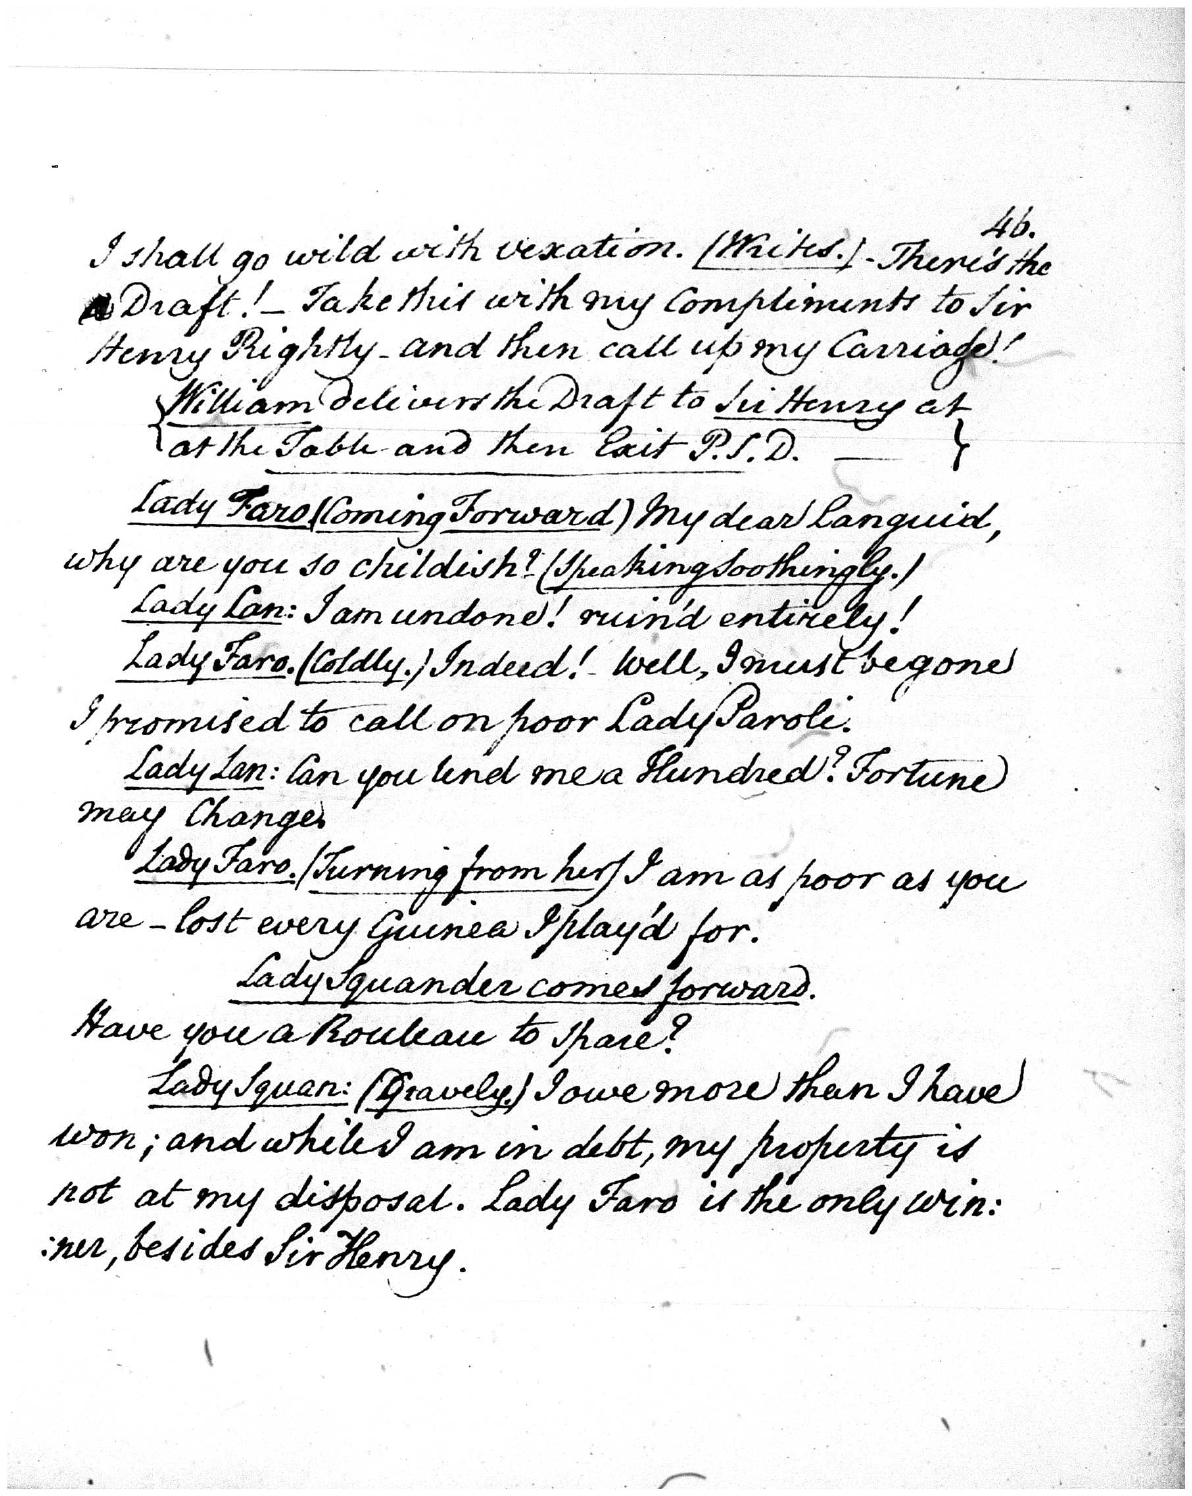 46.
I shall go wild with vexation. (Writes.) - There's the
Draft! - Take this with my Compliments to Sir
Henry Rightly - and then call up my Carriage!
William delivers the Draft to Sir Henry at
at the Table and then Exit P.S.D.
Lady Faro (Coming Forward) My dear Languid,
why are you so childish? (Speaking Soothingly.)
Lady Lan: I am undone! ruin'd entirely!
Lady Faro. (Coldly.) Indeed! - Well, I must be gone
I promised to call on poor Lady Paroli.
Lady Lan: Can you lend me a Hundred? Fortune
may Change.
Lady Faro. (Turning from her) I am as poor as you
are - lost every Guinea I play'd for.
Lady Squander comes forward.
Have you a Rouleau to spare?
Lady Squan: (Gravely.) I owe more than I have
won; and while I am in debt, my property is
not at my disposal. Lady Faro is the only win:
:ner, besides Sir Henry.